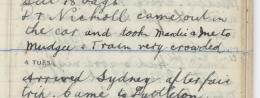 Sut 18 bags.
D.T. Nicholl came out in
the car and took Maudie & me to
Mudgee & Train very crowded.
4 TUES.
Arrived Sydney after fair
trip. Came to Lyttleton